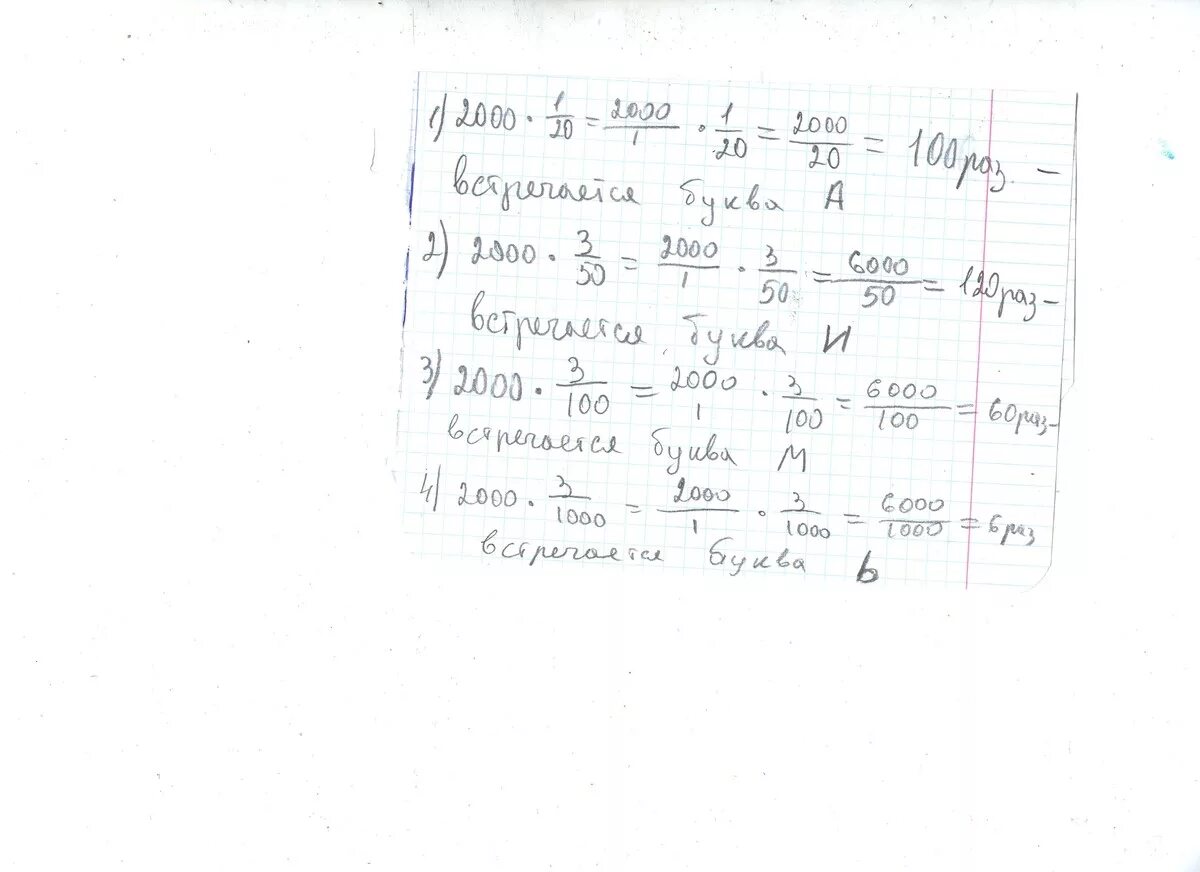 1) 2000 · 1/20 = 2000/1 · 1/20 = 2000/20 = 100 раз –
встречается буква А
2) 2000 · 3/50 = 2000/1 · 3/50 = 6000/50 = 120 раз –
встречается буква И
3) 2000 · 3/100 = 2000/1 · 3/100 = 6000/100 = 60 раз –
встречается буква М
4) 2000 · 3/1000 = 2000/1 · 3/1000 = 6000/1000 = 6 раз
встречается буква ь